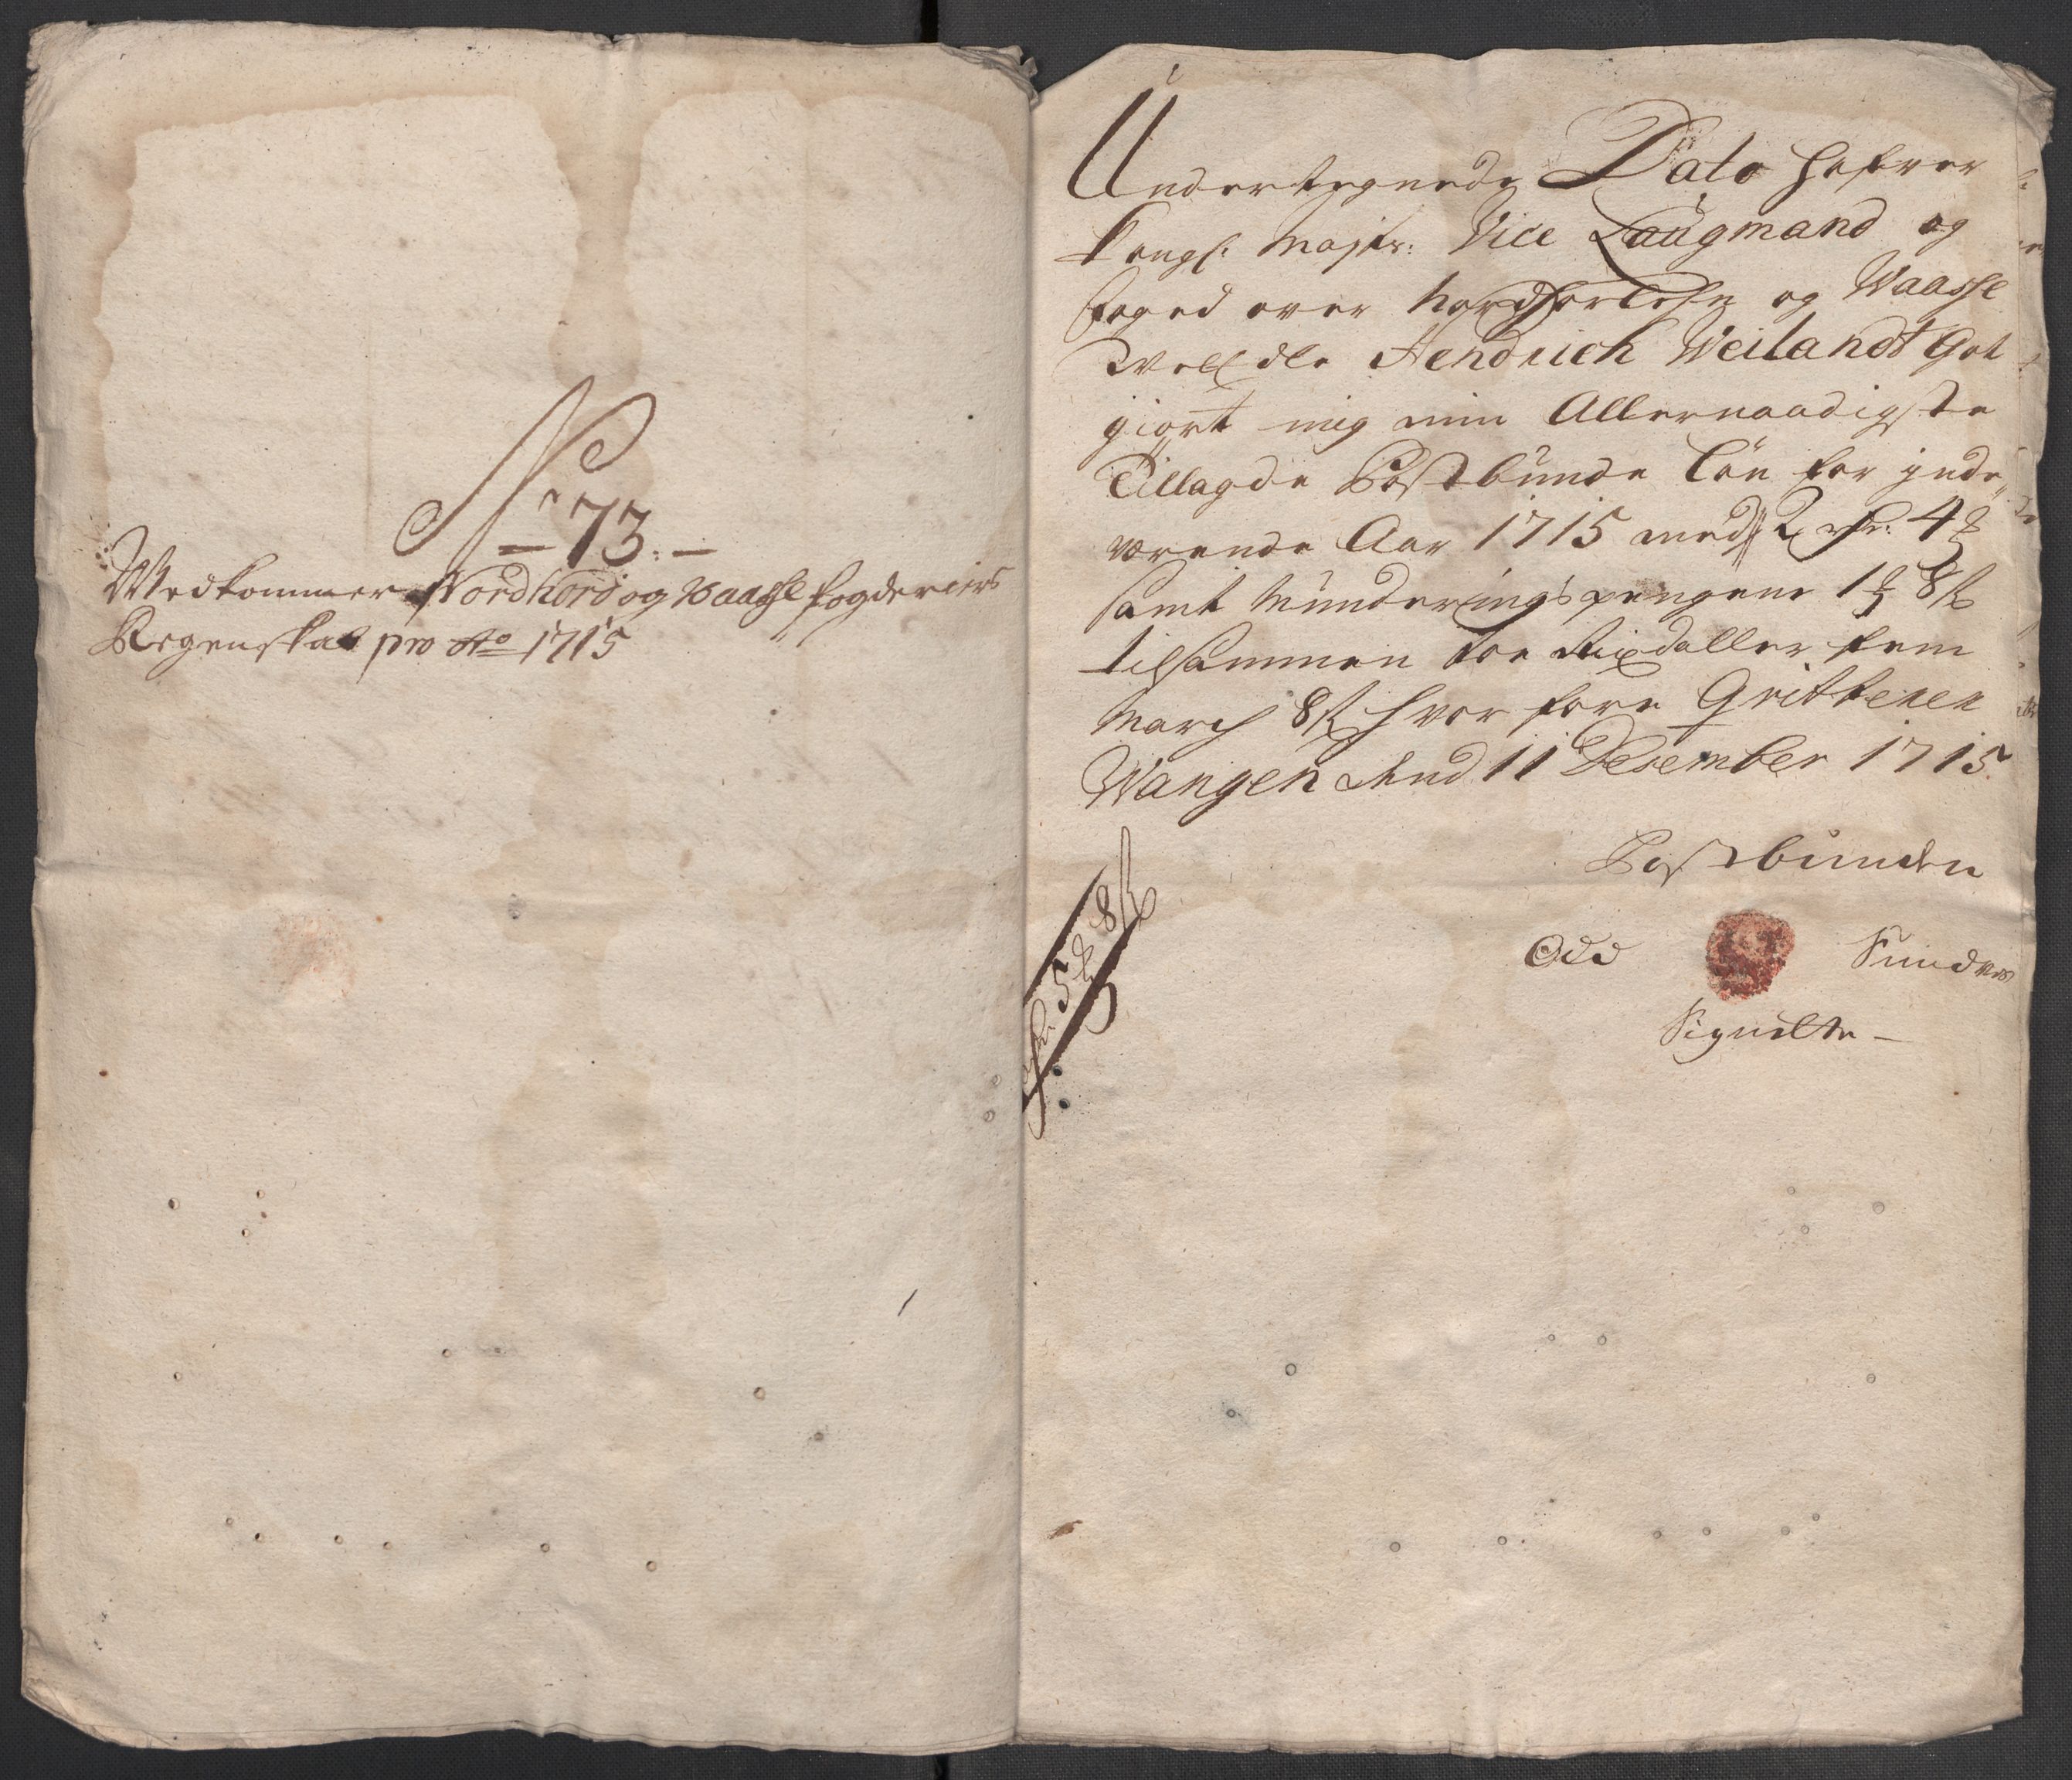 No 73.
Wedkommer Nordhord og Waasse fogderiers
Regenskab pro Ao 1715
Undertegnede Dato hafver
kongl: Mayts: Vice Laugmand og
foged over Nordhorlehn og Waasse
Vell Edle Hendrich Weilandt God
giort mig min Allernaadigste
Tillagde Postbunde Løn for inde
værende Aar 1715 med 2 rdr: 4 ß
samt Munderings pengene 1 8 ß
tilsammen toe Rixdaller fem
March 8 ß hvor fore Qvitterer
Wangen dend 11 Desember 1715
Postbunden
Odd Sundves
Signette
5 8 ß